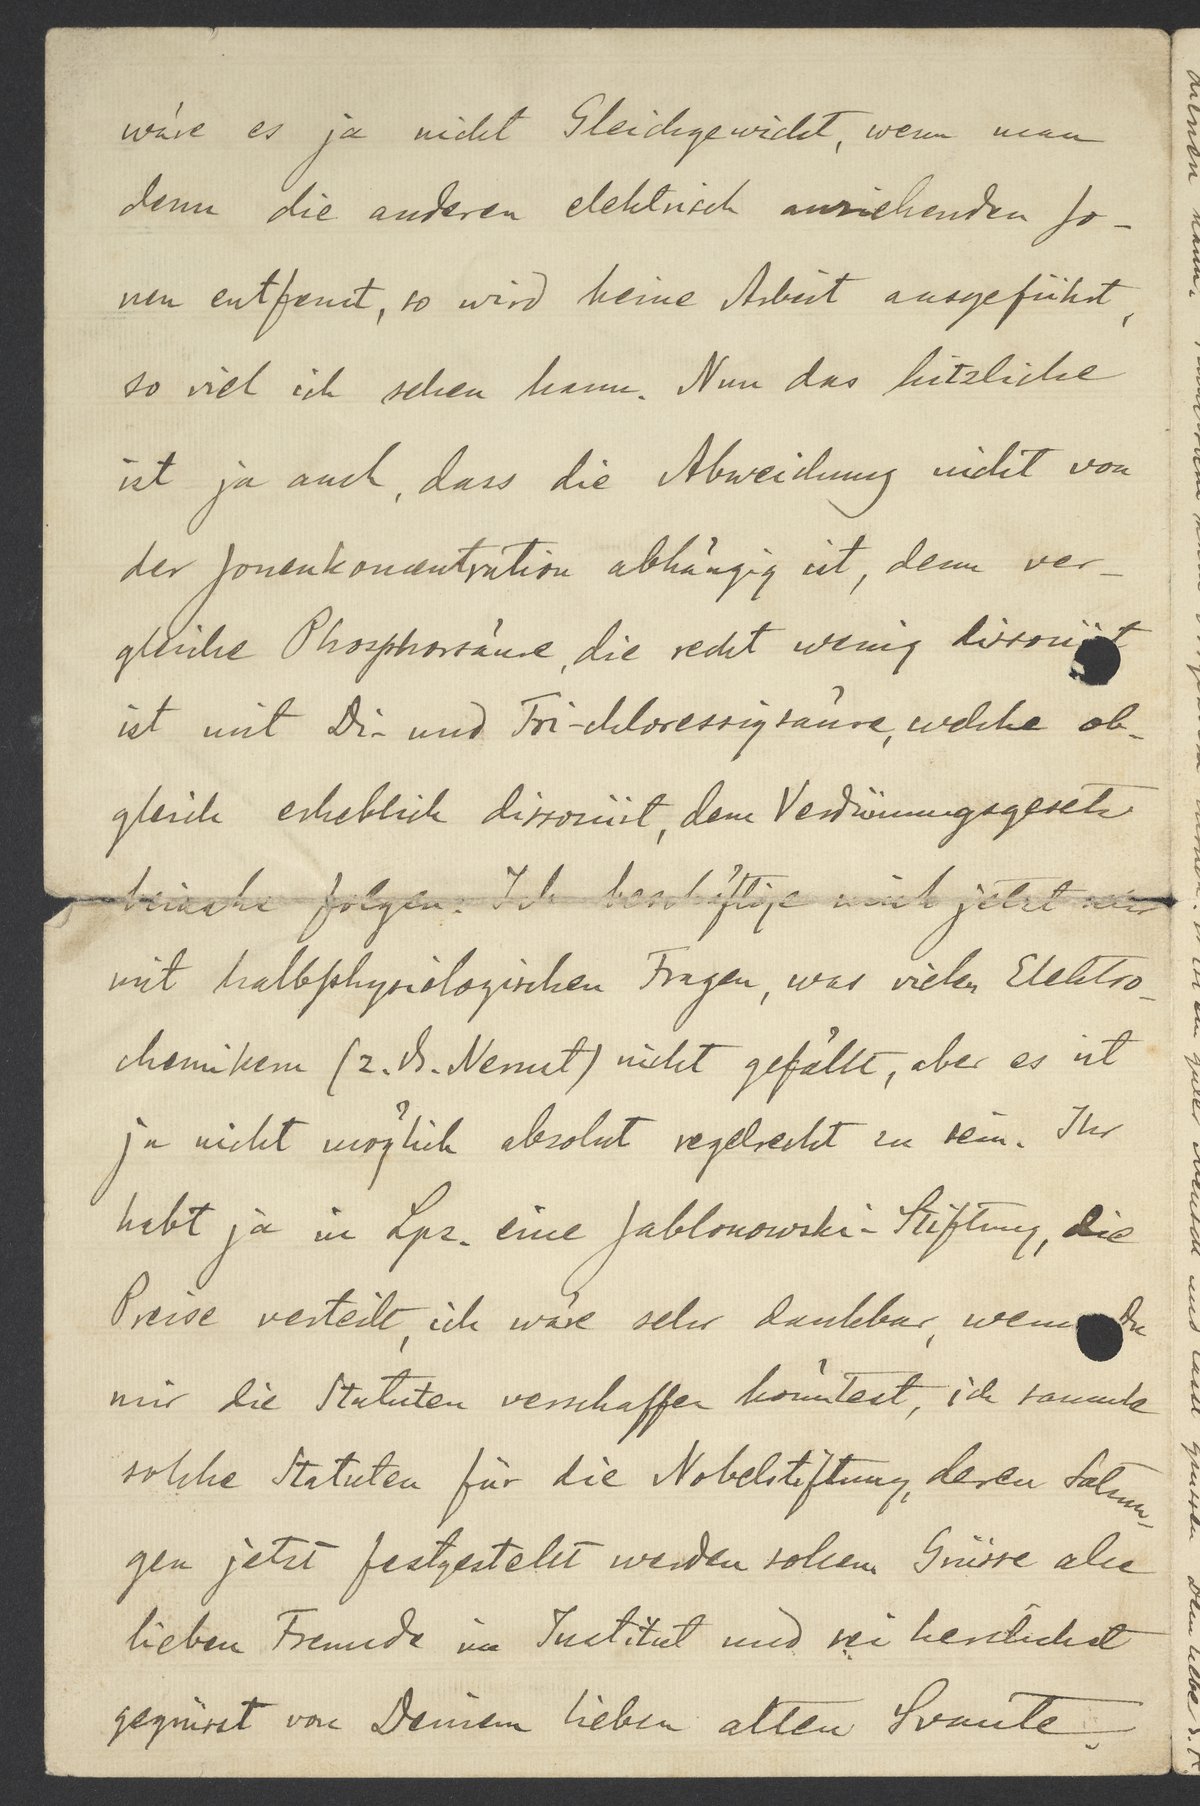 wäre es ja nicht Gleichgewicht, wenn man
denn die anderen elektrisch anziehenden Jo-
nen entfernt, so wird keine Arbeit ausgeführt,
so viel ich sehen kann. Nun das kitzliche
ist ja auch, dass die Abweichung nicht von
der Jonenkoncentration abhängig ist, denn ver-
gleiche Phosphorsäure, die recht wenig dissociiert
ist mit Di- und Tri-chloressigsäure, welche ob-
gleich erheblich dissociirt, dem Verdünnungsgesetz
beinahe folgen. Ich beschäftige mich jetzt nur
mit halbphysiologischen Fragen, was vielen Elektro-
chemikern (z.B. Nernst) nicht gefällt, aber es ist
ja nicht möglich absolut regelrecht zu sein. Ihr
habt ja in Lpz. eine Jablonowski-Stiftung, die
Preise verteilt, ich wäre sehr dankbar, wenn Du
mir die Statuten verschaffen könntest, ich sammle
solche Statuten für die Nobelstiftung, deren Satzun-
gen jetzt festgestellt werden sollen. Grüsse alle
lieben Freunde im Institut und sei herzlichst
gegrüsst von Deinem lieben alten Svante.